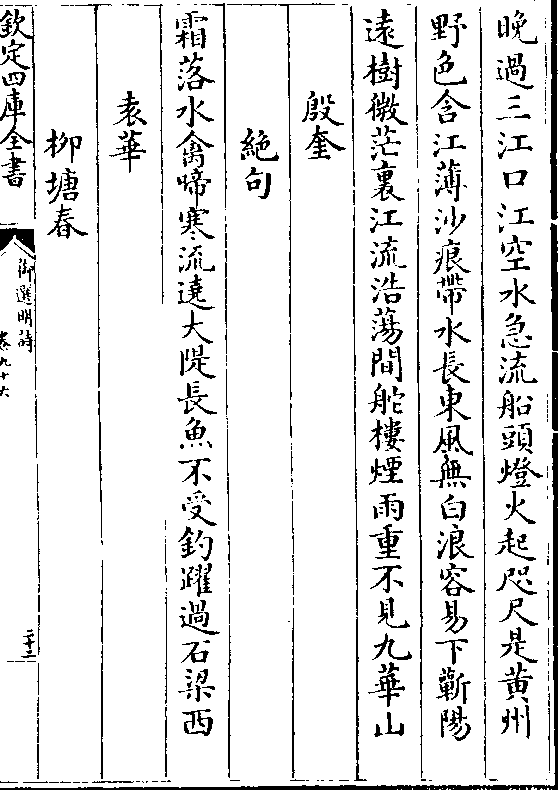 晚過三江口江空水急流船頭燈火起咫尺是黃州
野色含江薄沙痕帶水長東風無白浪容易下蘄陽
遠樹微茫裏江流浩蕩間舵樓煙雨重不見九華山
殷奎
絶句
霜落水禽啼寒流遶大隄長魚不受釣躍過石梁西
袁華
柳塘春
欽定四庫全書
御選明詩
卷九十六
二十三